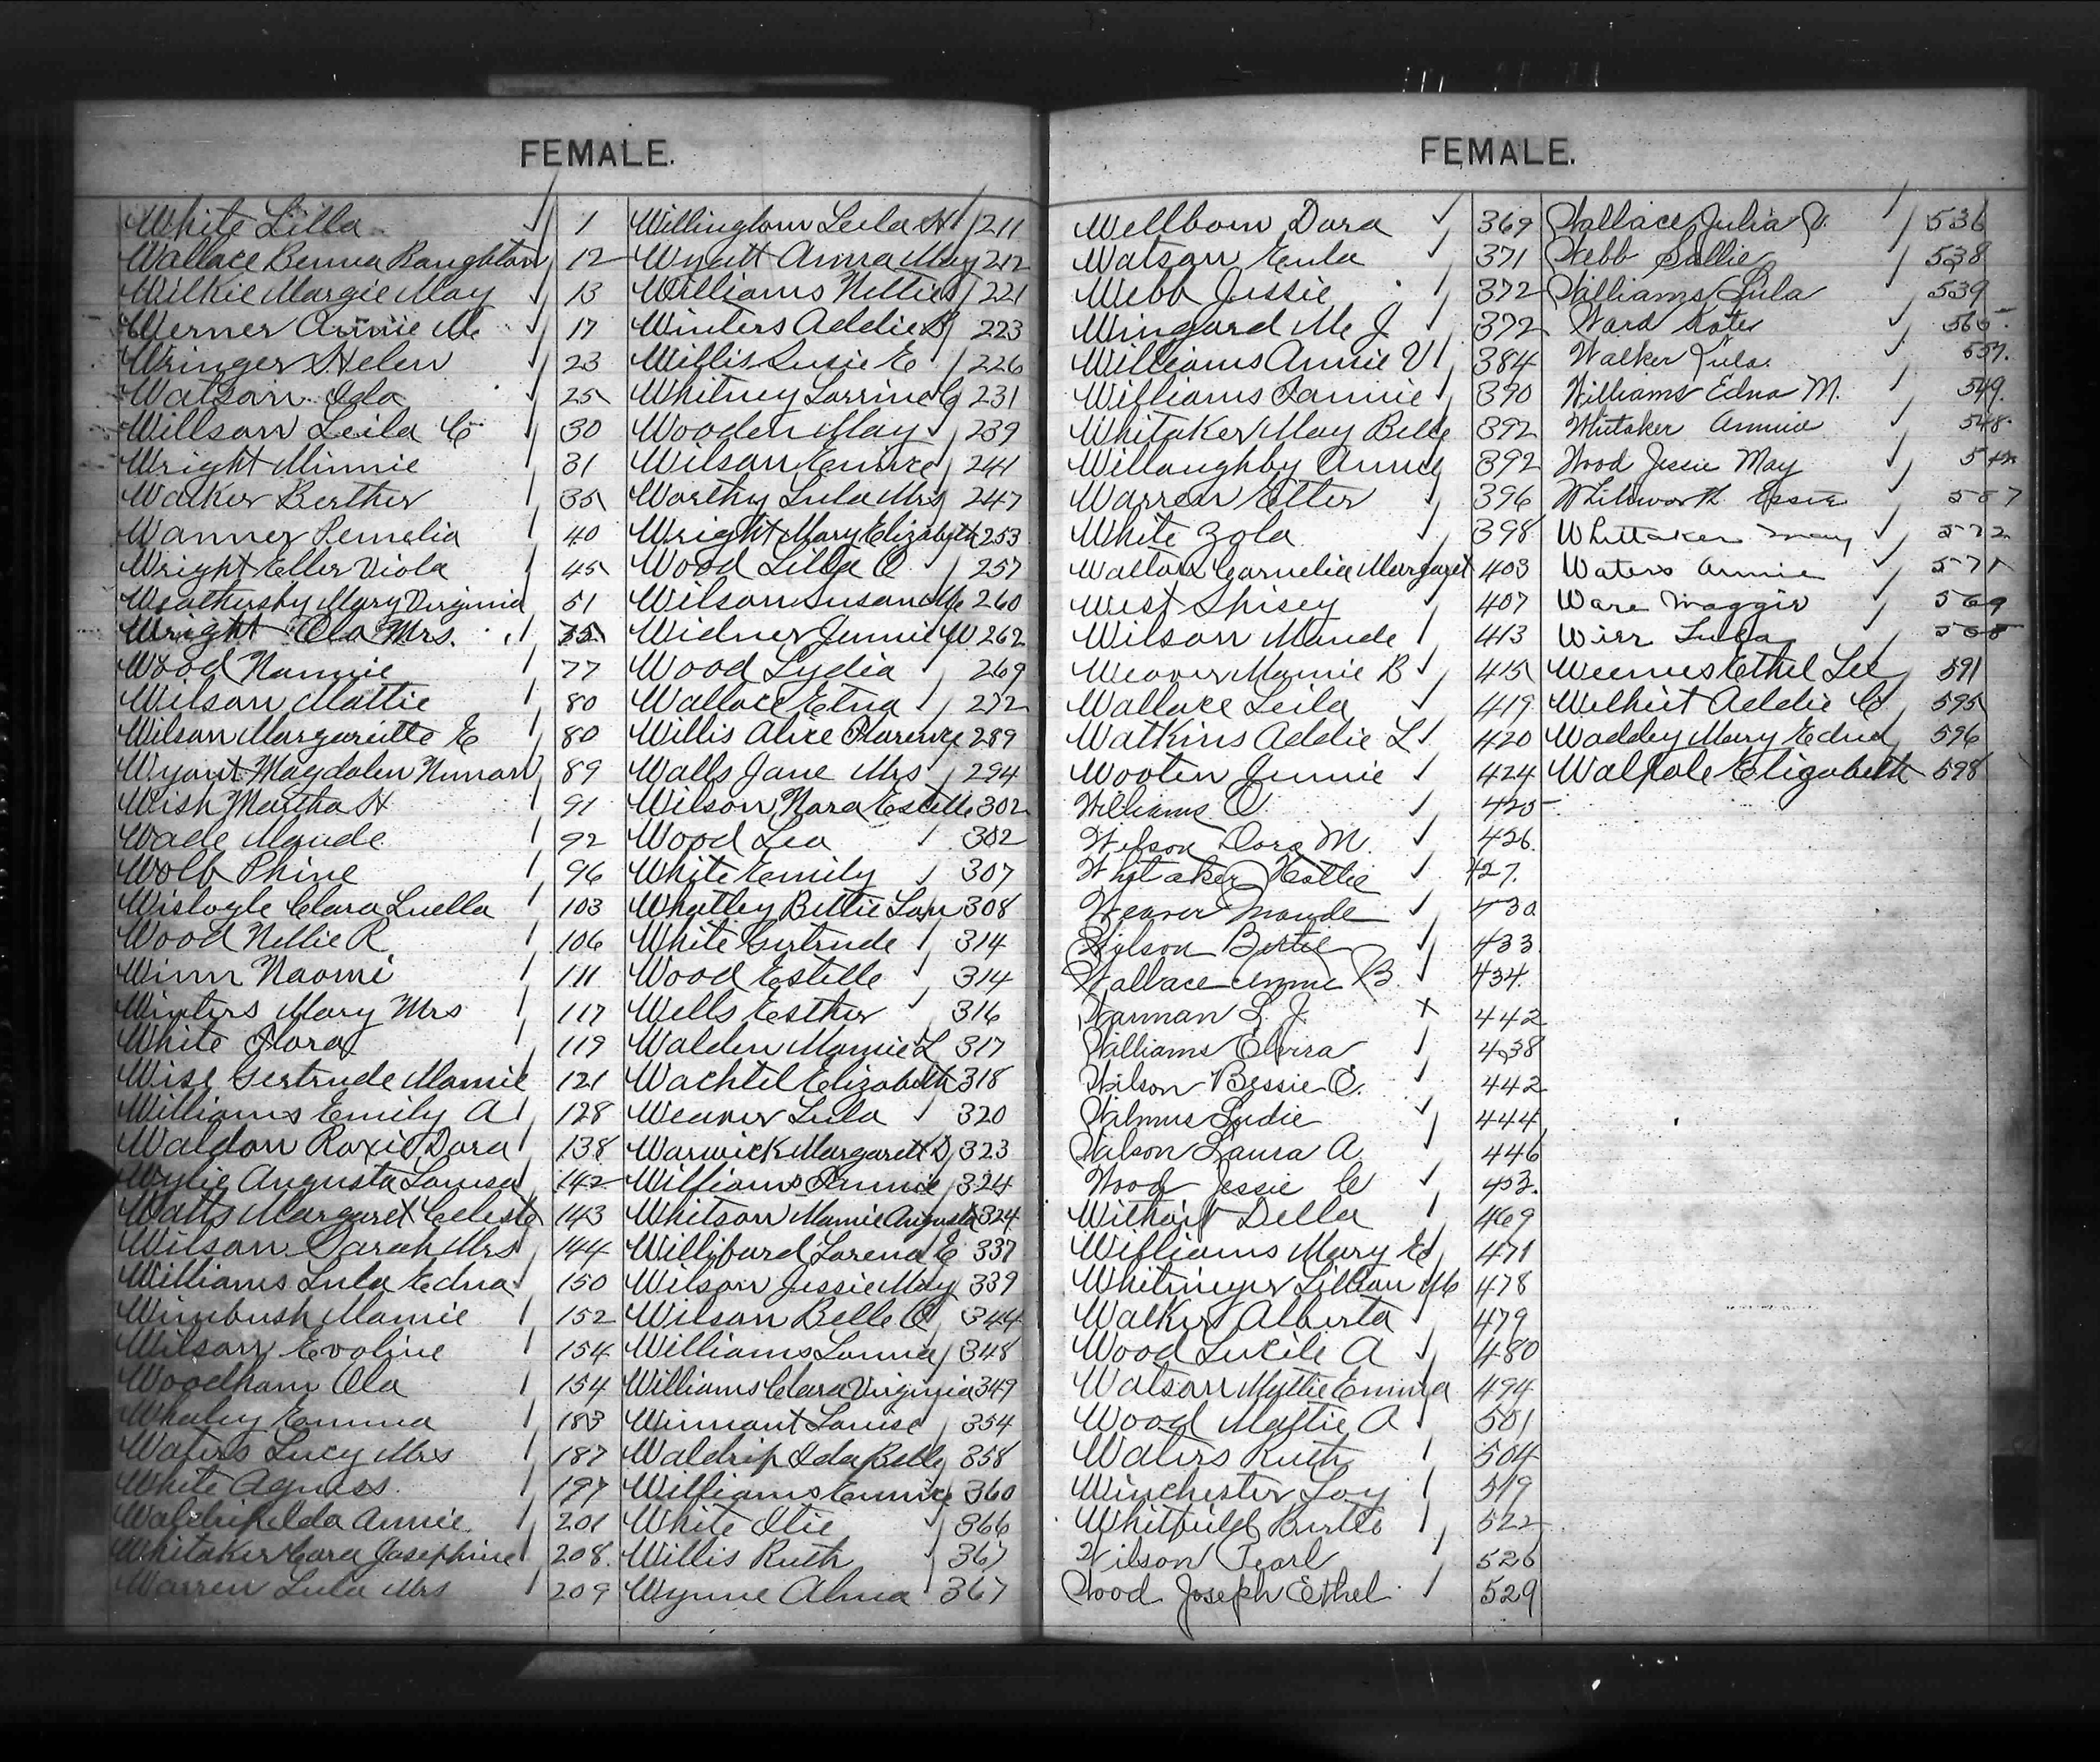 FEMALE.
White Lilla 1
Wallace Benna Raughton 12
Wilkie Margie May 13
Werner Annie M 17
Wringer Helen 23
Watson Ida 25
Willson Leila C 30
Wright Minnie 31
Walker Berther 35
Wanner Pemelia 40
Wright Eller Viola 45
Weathersby Mary Virginia 51
Wright Ola Mrs. 75
Wood Nannie 77
Wilson Mattie 80
Wilson Margariette E 80
Wyant Magdalen 89
Wish Martha H 91
Wade Maude 92
Wolb Phine 96
Wislogle Clara Luella 103
Wood Nellie R 106
Winn Naomi 111
Winters Mary Mrs 117
White Flora 119
Wise Gertrude Mamie 121
Williams Emily A 128
Waldon Roxie Dora 138
Wylie Augusta Louisa 142
Watts Margaret Celeste 143
Wilson Sarah Mrs 144
Williams Lula Edna 150
Wimbush Mamie 152
Wilson Evoline 154
Woodham Ola 154
Whaley Emma 183
Waters Lucy Mrs 187
White Agness 197
Waldrip Ida Annie 201
Whitaker Cara Josephine 208
Warren Lula Mrs 209
Willingham Leila H 211
Wyatt Anna May 212
Williams Nettie 221
Winters Addie B 223
Willis Susie E 226
Whitney Lorrine G 231
Wooden May 239
Wilson Eunice 241
Worthy Lula Mrs 247
Wright Mary Elizabeth 253
Wood Lilla O 257
Wilson Susan M 260
Widner Jennie W. 262
Wood Lydia 269
Wallace Etna 272
Willis Alice Florence 289
Walls Jane Mrs 294
Wilson Nora Estelle 302
Wood Lea 302
White Emily 307
Whatley Bettie Lou 308
White Gertrude 314
Wood Estelle 314
Wells Esther 316
Walden Mamie L 317
Wachtel Elizabeth 318
Weaver Lula 320
Warwick Margarett D 323
Williams Annie 324
Whitson Mamie Augusta 324
Williford Lorena E 337
Wilson Jessie May 339
Wilson Belle O 344
Williams Lonna 348
Williams Clara Virginia 349
Winnant Louise 354
Waldrip Ida Belle 358
Williams Eunice 360
White Otie 366
Willis Ruth 367
Wynne Alma 367
FEMALE.
Wellborn Dora 369
Watson Eula 371
Webb Jessie 372
Wingard M J 372
Williams Annie V 384
Williams Fannie 390
Whitaker May Belle 392
Willoughby Annie 392
Warren Etter 396
White Zola 398
Walton Cornelia Margaret 403
West Spisey 407
Wilson Maude 413
Weaver Mamie B 415
Wallace Leila 419
Watkins Addie L 420
Wooten Jennie 424
Williams O 425
Wilson Dora M. 426
Whitaker Hattie 427.
Weaver Maude 430
Wilson Bertie 433
Wallace Annie B. 434
Warman L. J. X 442
Williams Elvira 438
Wilson Bessie O. 442
Wilmus Ludie 444
Wilson Laura A 446
Wood Jessie C 453.
Wilhoit Della 469
Williams Mary E 471
Whitmeyer Lillian M 478
Walker Alberta 479
Wood Lucile A 480
Watson Mattie Emma 494
Wood Mattie A 501
Waters Ruth 504
Winchester Loy 519
Whitfield Birtto 522
Wilson Pearl 526
Wood Joseph Ethel 529
Wallace Julia V. 536
Webb Sallie 538
Williams Lula 539
Ward Kate
Walker Lula. 557.
Williams Edna M. 549.
Whitaker Annie 548
Wood Jessie May
Whitworth Essie
Whittaker May 572
Waters Annie 571
Ware Maggie 569
Wier Lula 568
Weems Ethel Lee 591
Wilhiit Addie C 595
Waddey Mary Edna 596
Walpole Elizabeth 598